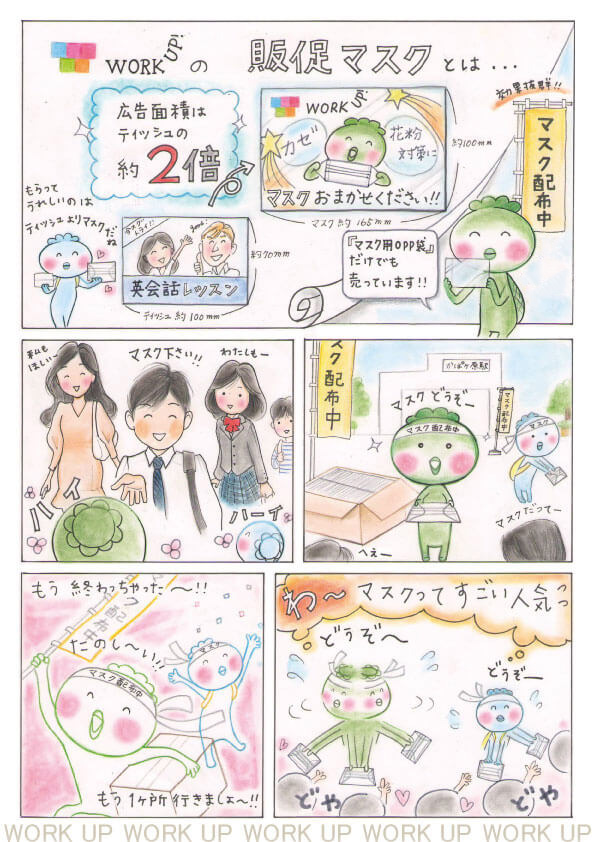 WORK UP!の 販促マスクとは...
効果抜群!!
広告面積は
ティッシュの
約2倍
WORK UP!
カゼ
花粉
対策に
マスクおまかせください!!
約100mm
マスク 約 165mm
マスク配布中
もらって
うれしいのは
ティッシュよりマスクだね
good!
英会話レッスン
約70mm
ティッシュ 約100mm
『マスク用OPP袋』
だけでも
売っています!!
マスク配布中
かっぱヶ原駅
マスクどうぞー
マスク配布中
マスク配布中
マスク
マスクだってー
へえー
私も
ほしい〜
マスク下さい!!
わたしもー
ハイ
ハーイ
わ〜マスクってすごい人気っ
どうぞ〜
どうぞー
どや
どや
もう終わっちゃった〜!!
マスク配布中
たのし〜い!!
マスク配布中
マスク
もう1ヶ所行きましょ〜!!
WORK UP WORK UP WORK UP WORK UP WORK UP